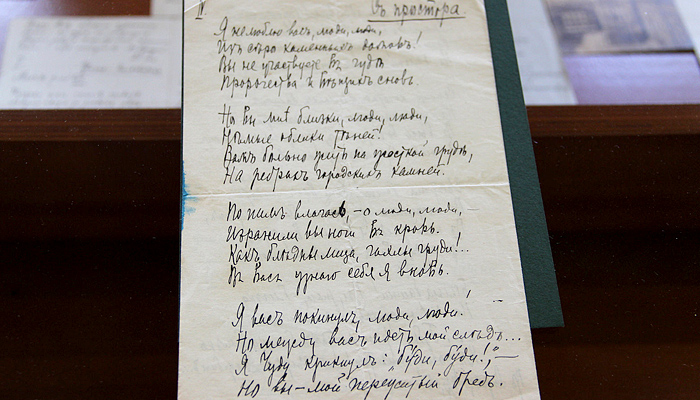 II.
Съ простора
Я не люблю васъ, люди, люди,
Изъ сѣро каменныхъ домовъ!
Вы не участвуете въ чудѣ
Пророчества и вѣщихъ сновъ.
Но вы мнѣ близки, люди, люди,
Нѣмые облики тѣней!
Вамъ больно жить на жосткой грудѣ,
На ребрахъ городскихъ камней.
По нимъ влачась, – о люди, люди, –
Изранили вы ноги въ кровь.
Какъ блѣдны лица, чахлы груди!..
Въ васъ узнаю себя я вновь.
Я васъ покинулъ, люди, люди! –
Но между васъ идетъ мой слѣдъ...
Я Чуду крикнулъ: "буди, буди!", –
Но вы – мой бредъ.